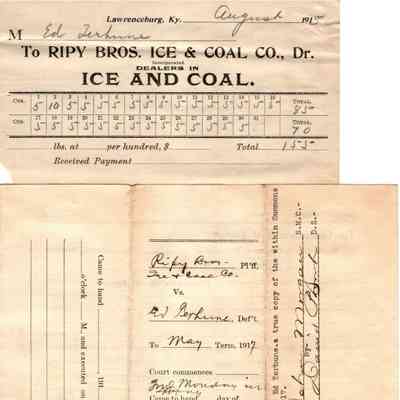 Lawrenceburg, Ky. August 191
M Ed Terhune
To RIPY BROS. ICE & COAL CO., Dr.
Incorporated
DEALERS IN
ICE AND COAL.
Cts. 1 2 3 4 5 6 7 8 9 10 11 12 13 14 15 16 Total
5 10 5 5 5 5 5 5 5 5 5 5 5 5 5 85
Cts. 17 18 19 20 21 22 23 24 25 26 27 28 29 30 31 Total
5 5 5 5 5 5 5 5 5 5 5 5 5 5 70
lbs. at per hundred, $ Total 155
Received Payment
Came to hand , 191
o'clock M. and executed on
Ripy Bros
Ice & Coal Co. Pl'ff.
Vs.
Ed Terhune, Def't
To May Term, 1917
Court commences
2nd Monday in
Came to hand day of
Ed Terhune, a true copy of the within Summons
17.
Morgan S.M.C.-
By D.S.-